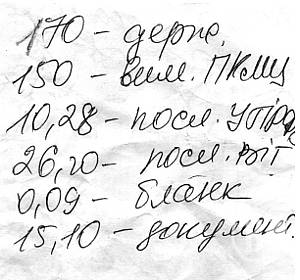 170 – держ.
150 – вим. ПКМЦ
10,28 – посл. УПРОД
26,20 – посл. ВТГ
0,09 – бланк
15,10 – документ.